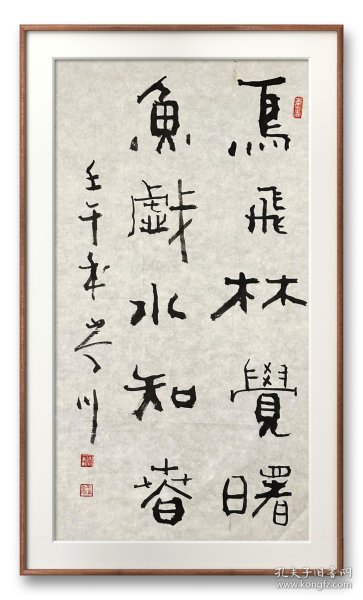 鳥飛林覺曙
魚戲水知春
壬午年
孔夫子旧书网
kongfz.com